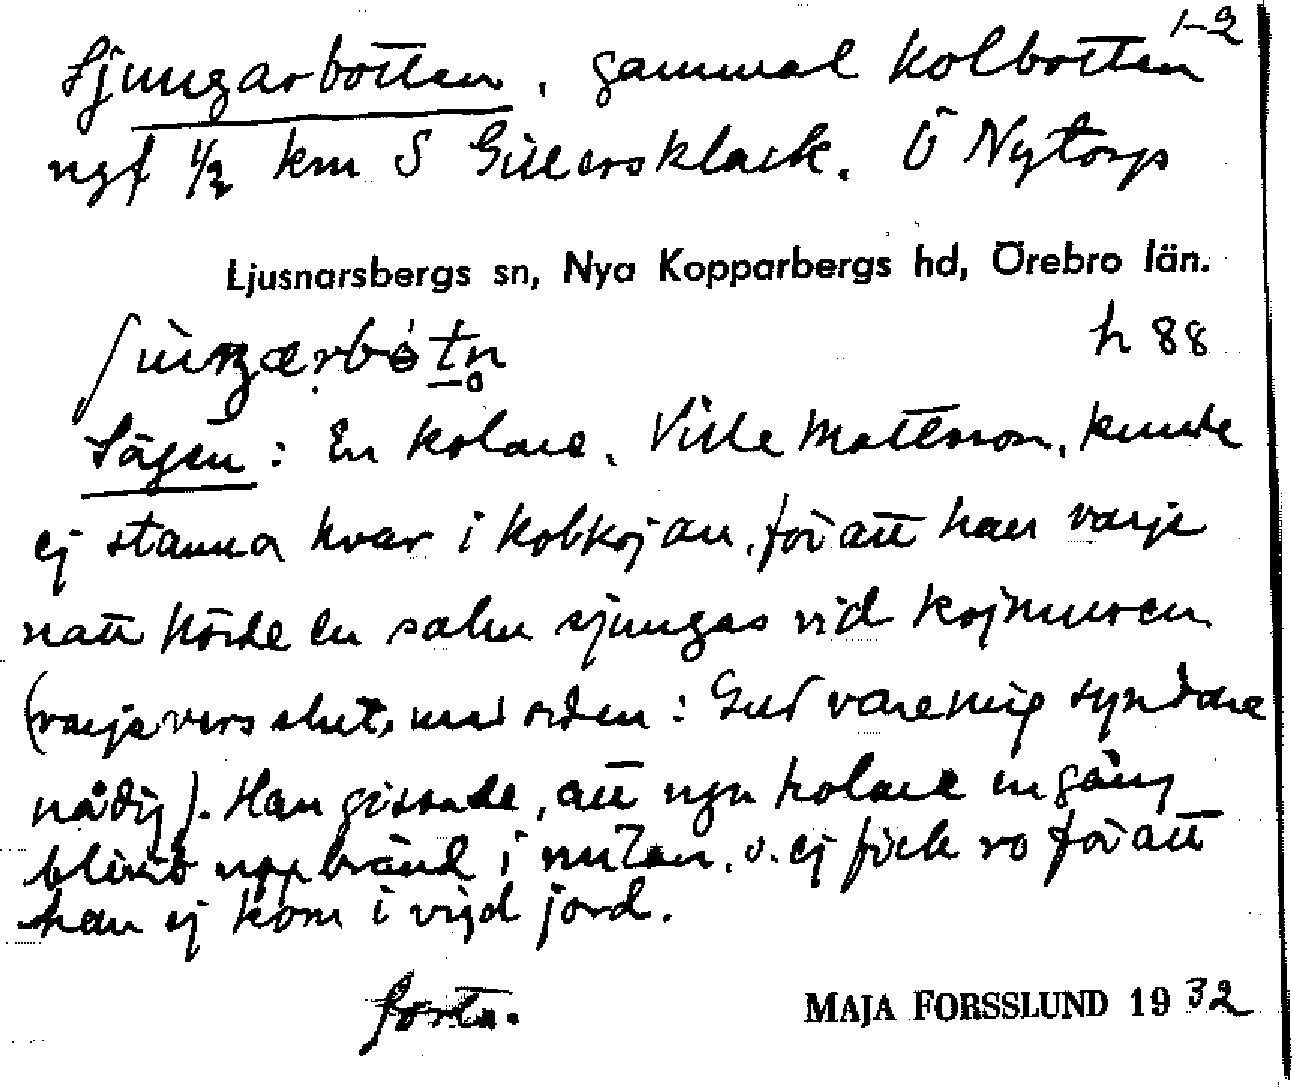 1-2
Sjungarbotten, gammal kolbotten
ngt 1/2 km S Gillersklack. Ö Nytorp
Ljusnarsbergs sn, Nya Kopparbergs hd, Örebro län.
h 88
Sägen: En kolare, Ville Mattsson, kunde
ej stanna kvar i kolkojan, för att han varje
natt hörde en salm sjungas vid kojmuren
(varje vers slut. med orden: Gud vare mig syndare
nådig). Han gissade, att ngn kolare en gång
blivit uppbränd i milan, o. ej fick ro för att
han ej kom i vigd jord.
forts.
MAJA FORSSLUND 1932